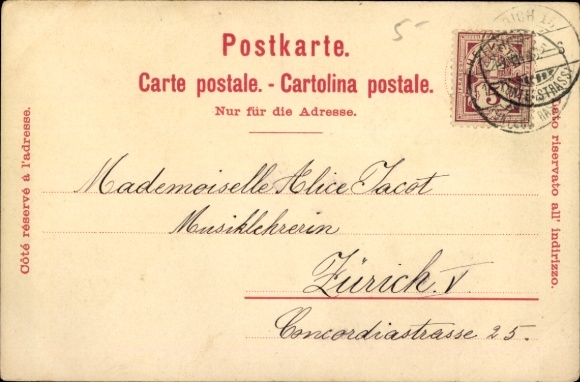 5-
Postkarte.
Carte postale. - Cartolina postale.
Nur für die Adresse.
Côté réservé à l'adresse.
riservato all' indirizzo.
5
Mademoiselle Alice Jacot
Musiklehrerin
Zürich. V.
Concordiastrasse 25.